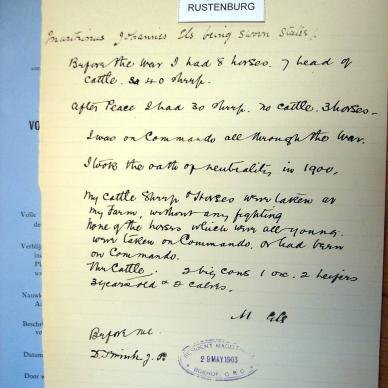 RUSTENBURG
Marthinus Johannes Els being sworn States:
Before the War I had 8 horses. 7 head of
cattle. 40 sheep.
After Peace I had 30 sheep. no cattle. 3 horses—
I was on Commando all through the War.
I took the oath of neutrality in 1900.
My Cattle Sheep & Horses were taken at
my Farm, without any fighting
None of the horses which were all young.
were taken on Commando, or had been
on Commando.
The Cattle. 2 big cows 1 ox. 2 heifers
3 years old & 2 calves.
M Els
Before me.
J.P.
RESIDENT MAGISTRATE
29 MAY 1903
BOSHOF, O.R.C.
VO
Volle
de
Verblij
Nauw
Beschri
Datum
Door w